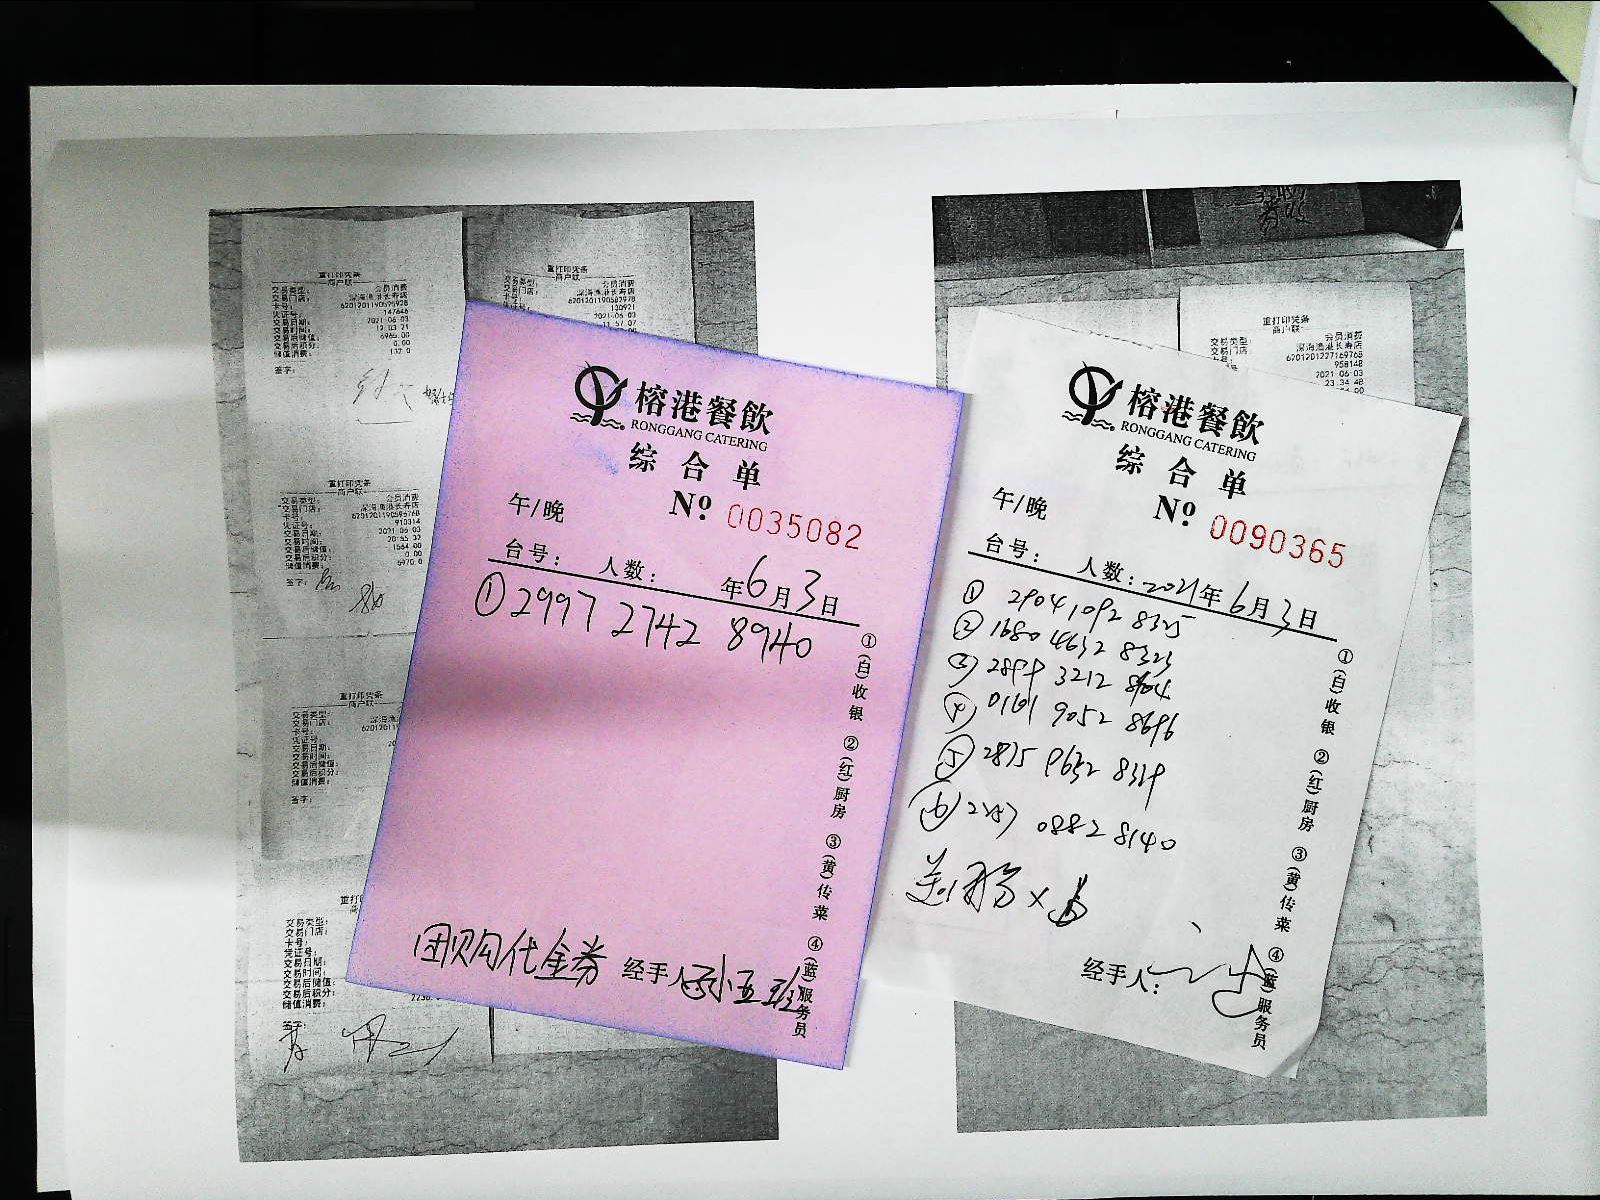 重打印凭条
商户联
交易类型: 会员消费
交易门店: 深海渔港长寿店
卡号: 6201201190595928
凭证号: 147646
交易日期: 2021-06-03
交易时间:
交易后储值: 6965.00
交易后积分: 0.00
储值消费:
签字:
重打印凭条
商户联
交易类型: 会员消费
交易门店: 深海渔港长寿店
卡号: 6201201190595768
凭证号: 910314
交易日期: 2021-06-03
交易时间: 20:55:32
交易后储值: 1564.00
交易后积分: 0.00
储值消费:
签字:
重打印凭条
商户联
交易类型:
交易门店: 深海渔
卡号:
凭证号:
交易日期:
交易时间:
交易后储值:
交易后积分:
储值消费:
签字:
重打
交易类型:
交易门店:
卡号:
凭证号:
交易日期:
交易时间:
交易后储值:
交易后积分:
储值消费:
签字:
重打印凭条
商户联
会员消费
深海渔港长寿店
6201201190582978
130921
2021-06-03
11:57:07
榕港餐飲
RONGGANG CATERING
综合单
午/晚
Nº 0035082
台号: 人数: 年6月3日
①2997 2742 8940
①(白)收银 ②(红)厨房 ③(黄)传菜 ④(蓝)服务员
团购代金券
经手人
重打印凭条
商户联
交易类型: 会员消费
交易门店: 深海渔港长寿店
6201201227169768
958148
2021-06-03
23:34:48
榕港餐飲
RONGGANG CATERING
综合单
午/晚
Nº 0090365
台号: 人数: 2021年6月3日
① 2904 1092 8325
② 1680 4632 8323
③ 2899 3212
④ 0161 9052 8696
⑤ 2875 9632 8319
⑥ 0882 8140
①(白)收银 ②(红)厨房 ③(黄)传菜 ④(蓝)服务员
经手人: